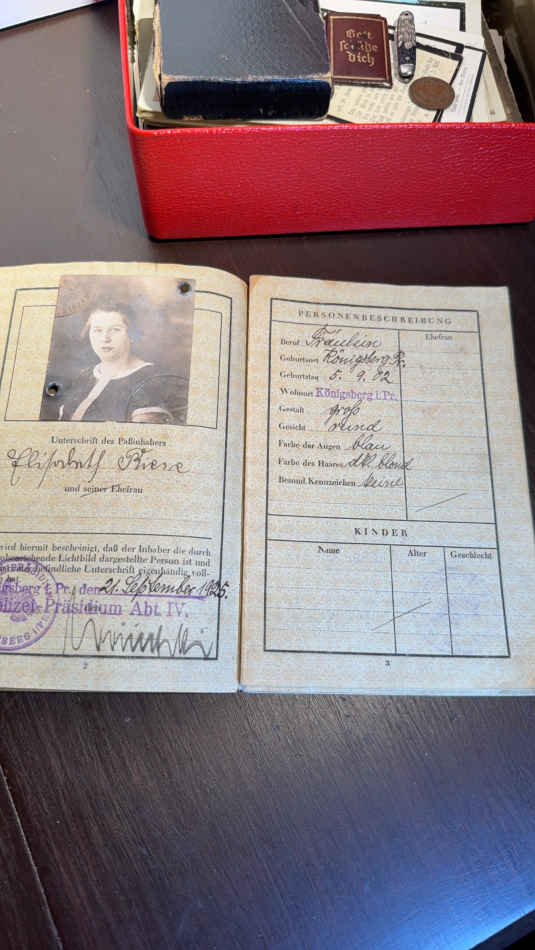 Gott
schütze
Dich
Unterschrift des Paßinhabers
Elisabeth Riese
und seiner Ehefrau
wird hiermit bescheinigt, daß der Inhaber die durch
obenstehende Lichtbild dargestellte Person ist und
befindliche Unterschrift eigenhändig voll-
Königsberg i. Pr. den 21. September 1925.
Polizei-Präsidium Abt. IV.
2
PERSONENBESCHREIBUNG
Ehefrau
Beruf Fräulein
Geburtsort Königsberg Pr.
Geburtstag 5. 9. 02
Wohnort Königsberg i. Pr.
Gestalt groß
Gesicht rund
Farbe der Augen blau
Farbe des Haares dkl. blond
Besond. Kennzeichen keine
KINDER
Name Alter Geschlecht
3